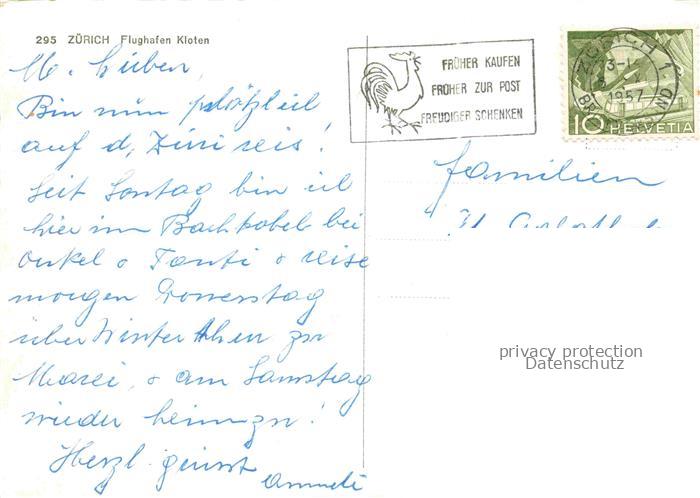 295 ZÜRICH Flughafen Kloten
FRÜHER KAUFEN
FRÜHER ZUR POST
FREUDIGER SCHENKEN
ZÜRICH 1
1957
10 HELVETIA
M. Lieben,
Bin nun plötzlich
auf d. Züri reis!
Seit Sontag bin ich
hier im Bachtobel bei
Onkel & Tanti & reise
morgen Donnerstag
über Winterthur zu
& am Samstag
wieder heimzu!
Herzl. grüsst
Familien
privacy protection
Datenschutz